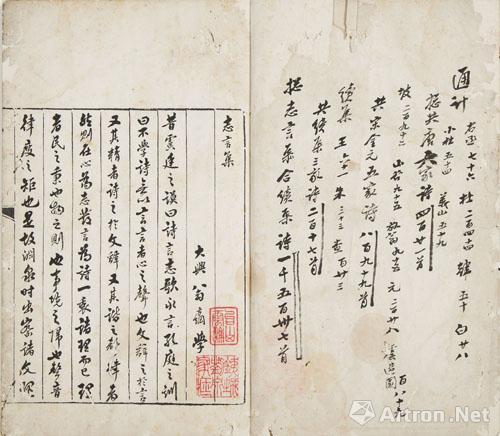 通计
右丞七十六 杜二百四十四 韓五十 白廿八
小杜五十四 義山五十九
總共唐六家詩四百廿一首
坡二百九十二 山谷九十五 放翁九十五 元二百廿八 道園百八十九
共宋金元五家詩八百九十九首
續集 王六一 朱三三 查百廿三
共續集三家詩二百十七首
總志言集合續集詩一千五百卅七首
志言集
大興翁方綱學
昔虞廷之謨曰詩言志歌永言孔庭之訓
曰不學詩無以言言者心之聲也文辭之於言
又其精者詩之於文辭又其諧之聲律者
然則在心為志發言為詩一衷諸理而已理
者民之秉也物之則也事境之歸也聲音
律度之矩也是故淵泉時出察諸文理
Artron.Net
雅昌艺术网